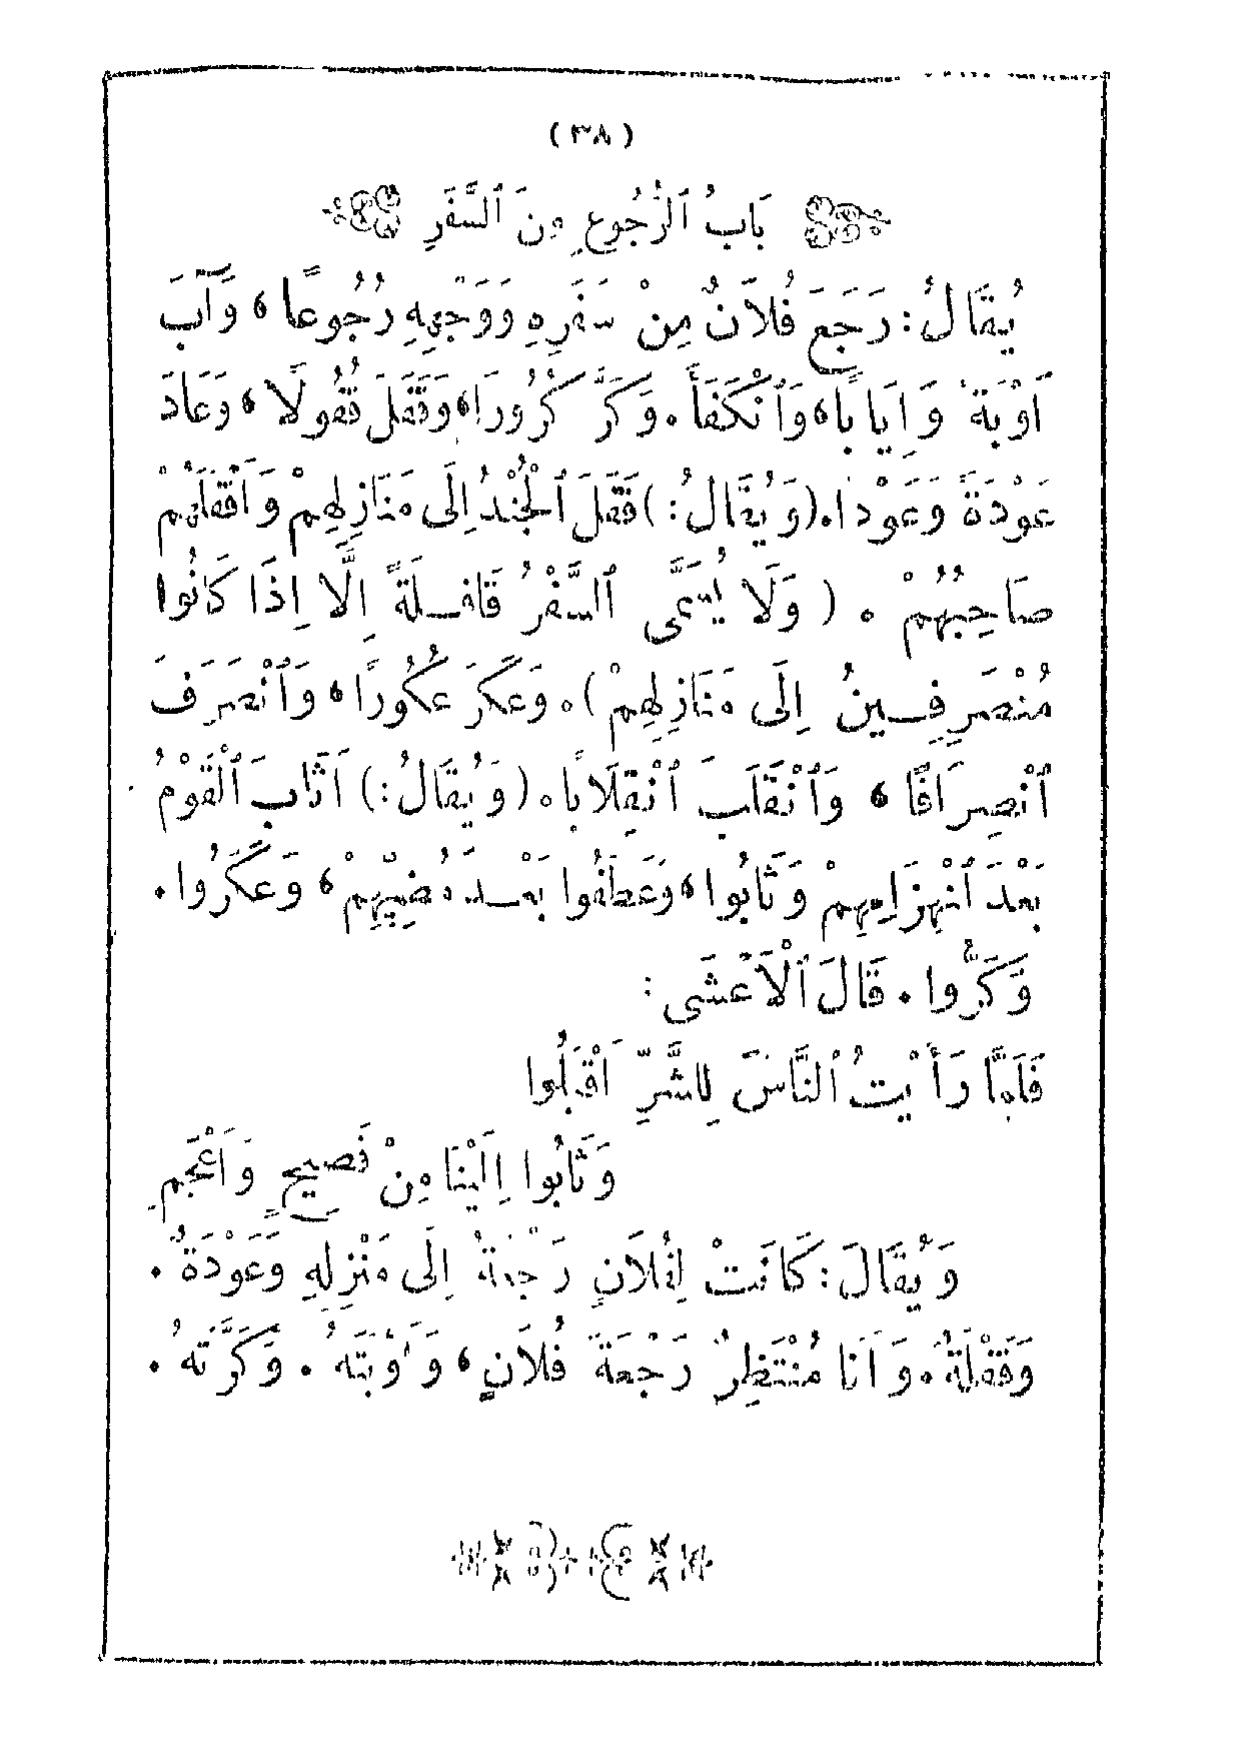 (٣٨)
بَابُ ٱلرُّجُوعِ مِنَ ٱلسَّفَرِ
يُقَالُ: رَجَعَ فُلَانٌ مِنْ سَفَرِهِ وَوَجْهِهِ رُجُوعًا، وَآبَ
اَوْبَةً وَاِيَابًا، وَٱنْكَفَأَ. وَكَرَّ كُرُورًا، وَقَفَلَ قُفُولًا، وَعَادَ
عَوْدَةً وَعَوْدًا. (وَيُقَالُ:) قَفَلَ ٱلْجُنْدُ اِلَى مَنَازِلِهِمْ وَاَقْفَلَهُمْ
صَاحِبُهُمْ. (وَلَا يُسَمَّى ٱلسَّفْرُ قَافِلَةً اِلَّا اِذَا كَانُوا
مُنْصَرِفِينَ اِلَى مَنَازِلِهِمْ). وَعَكَرَ عُكُورًا، وَٱنْصَرَفَ
ٱنْصِرَافًا، وَٱنْقَلَبَ ٱنْقِلَابًا. (وَيُقَالُ:) اَثَابَ ٱلْقَوْمُ
بَعْدَ ٱنْهِزَامِهِمْ وَثَابُوا، وَعَطَفُوا بَعْدَ مُضِيِّهِمْ، وَعَكَرُوا.
وَكَرُّوا. قَالَ ٱلْاَعْشَى:
فَلَمَّا رَأَيْتُ ٱلنَّاسَ لِلشَّرِّ اَقْبَلُوا
وَثَابُوا اِلَيْنَا مِنْ فَصِيحٍ وَاَعْجَمِ
وَيُقَالُ: كَانَتْ لِفُلَانٍ رَجْعَةٌ اِلَى مَنْزِلِهِ وَعَوْدَةٌ.
وَقَفْلَةٌ. وَاَنَا مُنْتَظِرٌ رَجْعَةَ فُلَانٍ، وَاَوْبَتَهُ. وَكَرَّتَهُ.